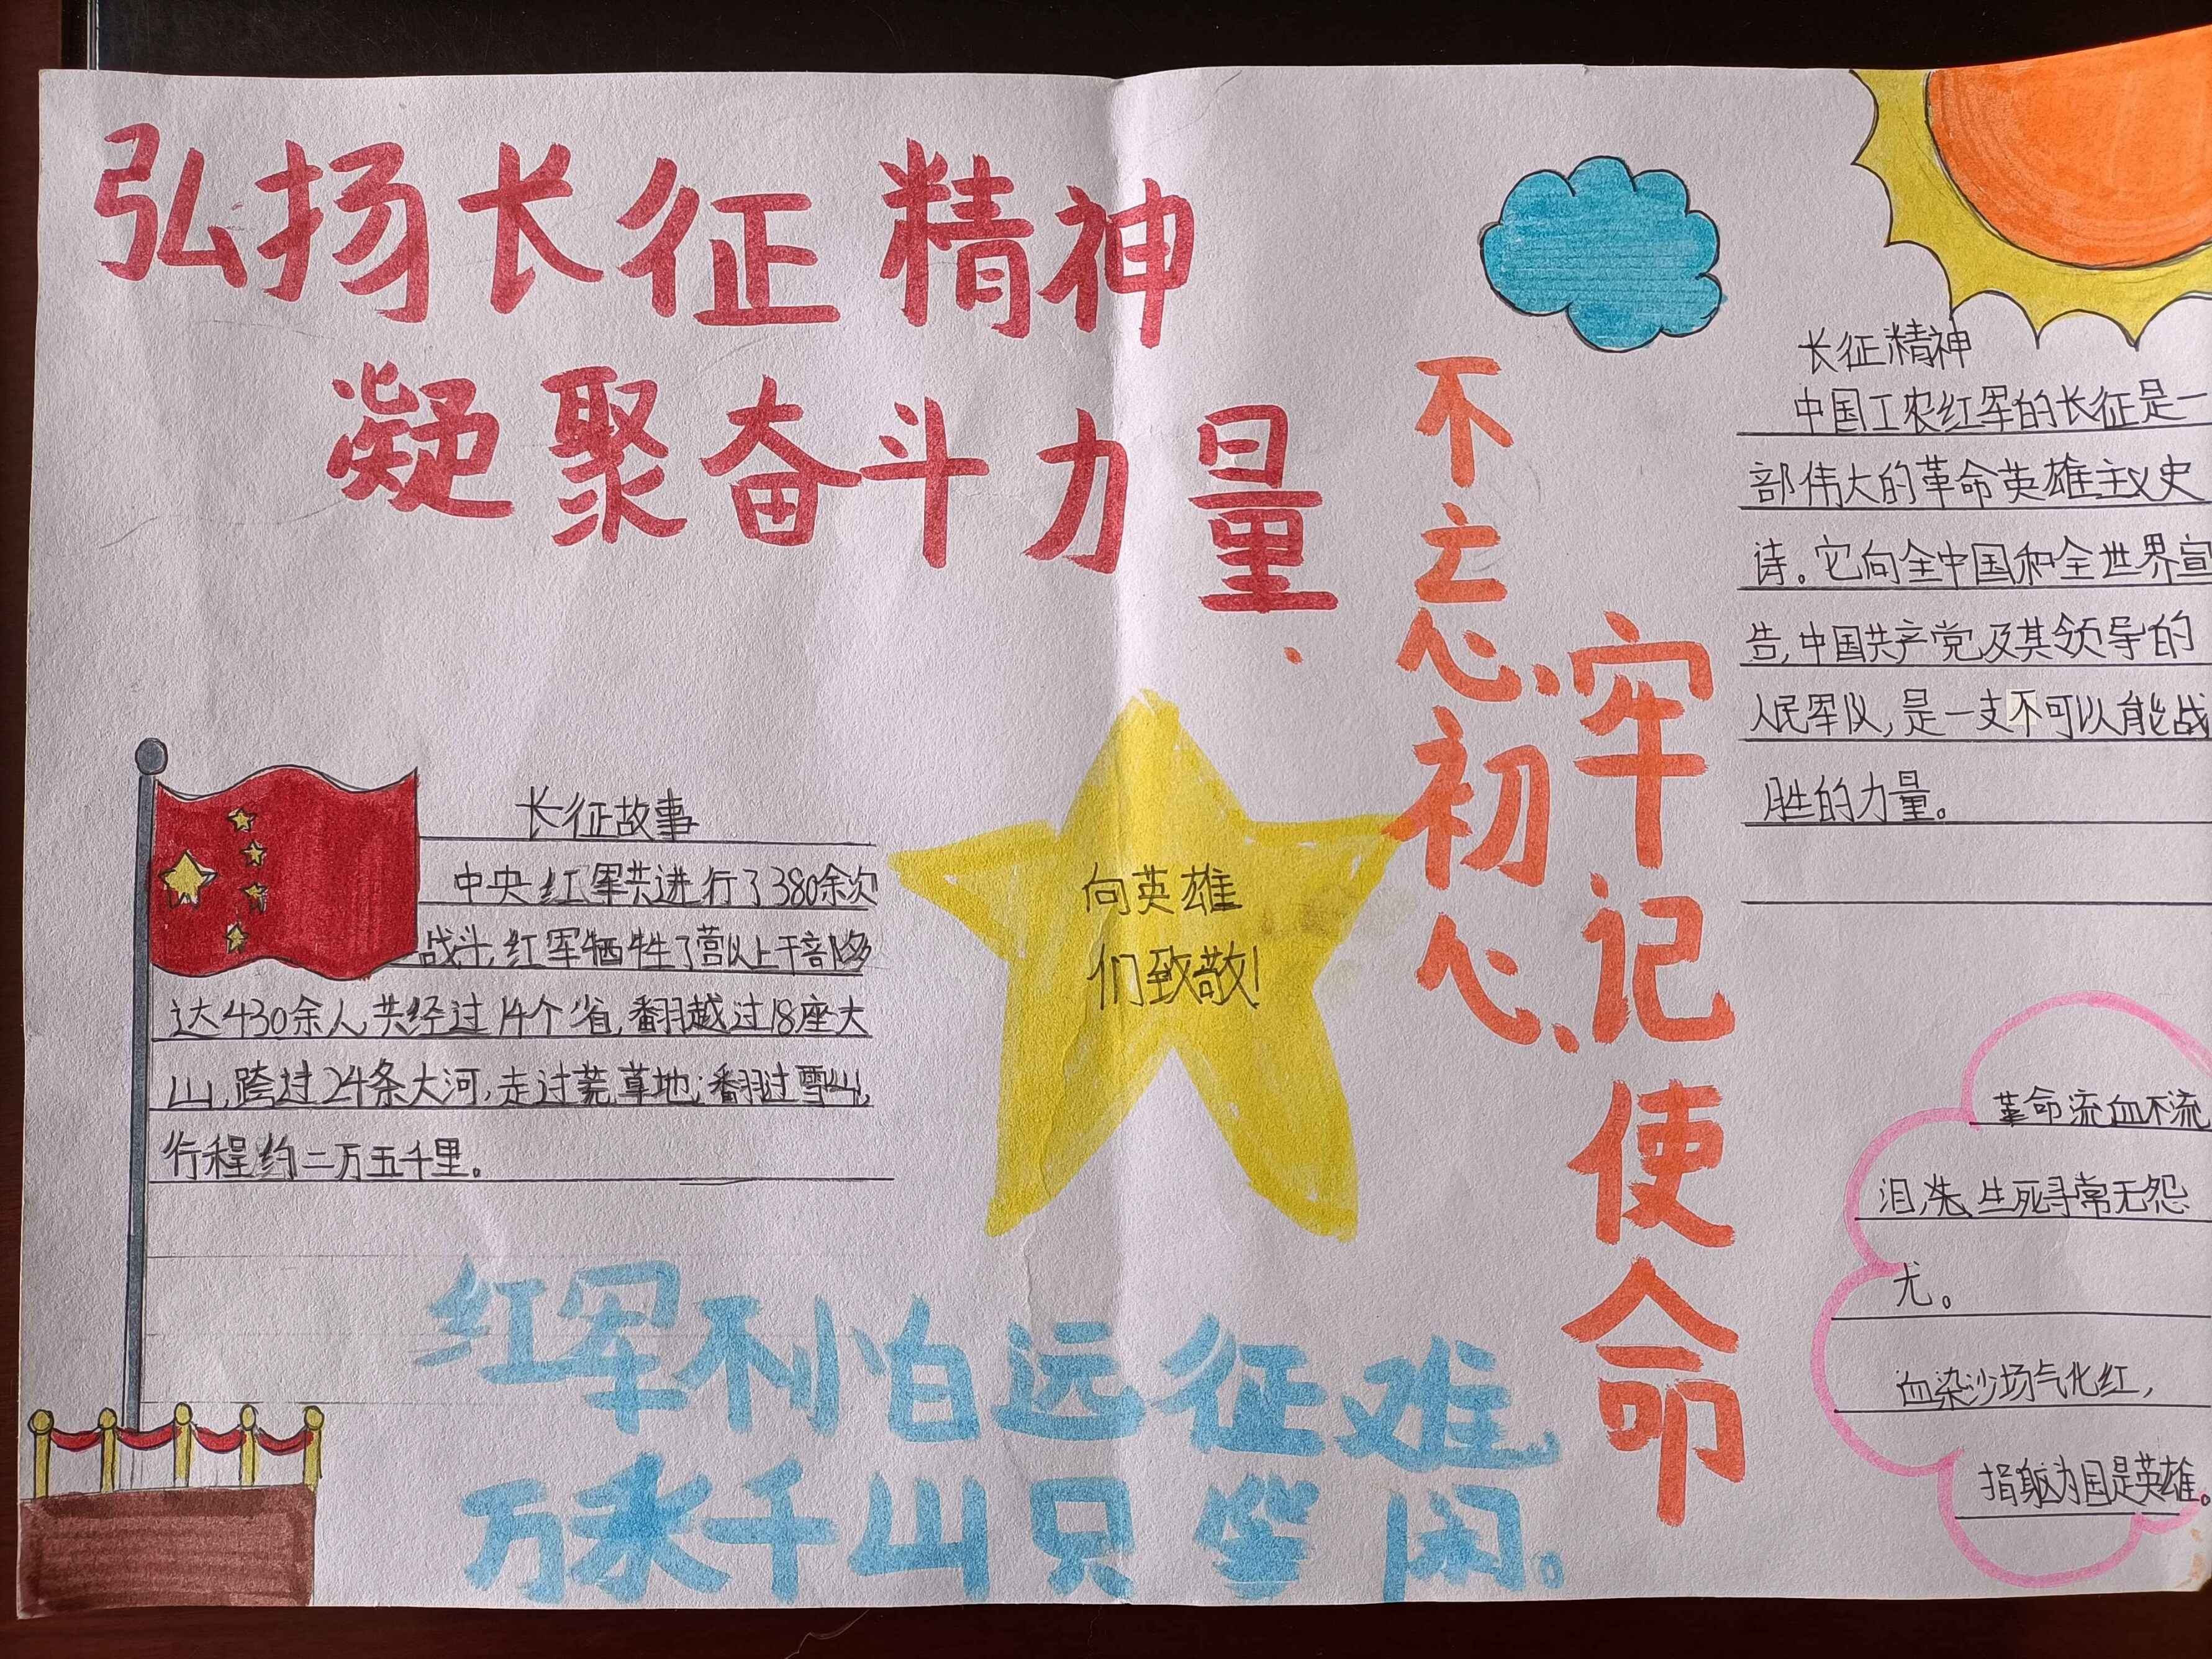 弘扬长征精神
凝聚奋斗力量.
不忘初心、
牢记使命
长征精神
中国工农红军的长征是一
部伟大的革命英雄主义史
诗。它向全中国和全世界宣
告,中国共产党及其领导的
人民军队,是一支不可以能战
胜的力量。
长征故事
中央红军共进行了380余次
战斗,红军牺牲了营以上干部多
达430余人,共经过14个省,翻越过18座大
山,跨过24条大河,走过荒草地;翻过雪山,
行程约二万五千里。
向英雄
们致敬!
革命流血不流
泪,生死寻常无怨
尤。
血染沙场气化红,
捐躯为国是英雄。
红军不怕远征难,
万水千山只等闲。